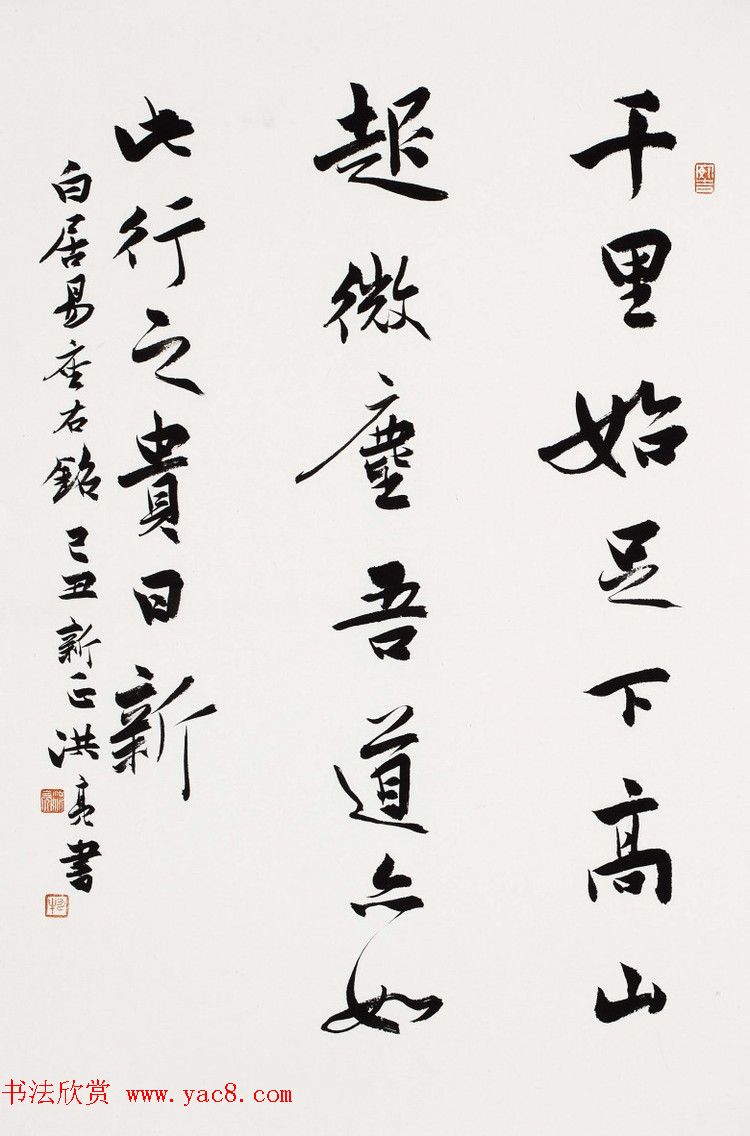 千里始足下高山
起微塵吾道亦如
此行之貴日新
白居易座右銘己丑新正洪亮書
书法欣赏 www.yac8.com